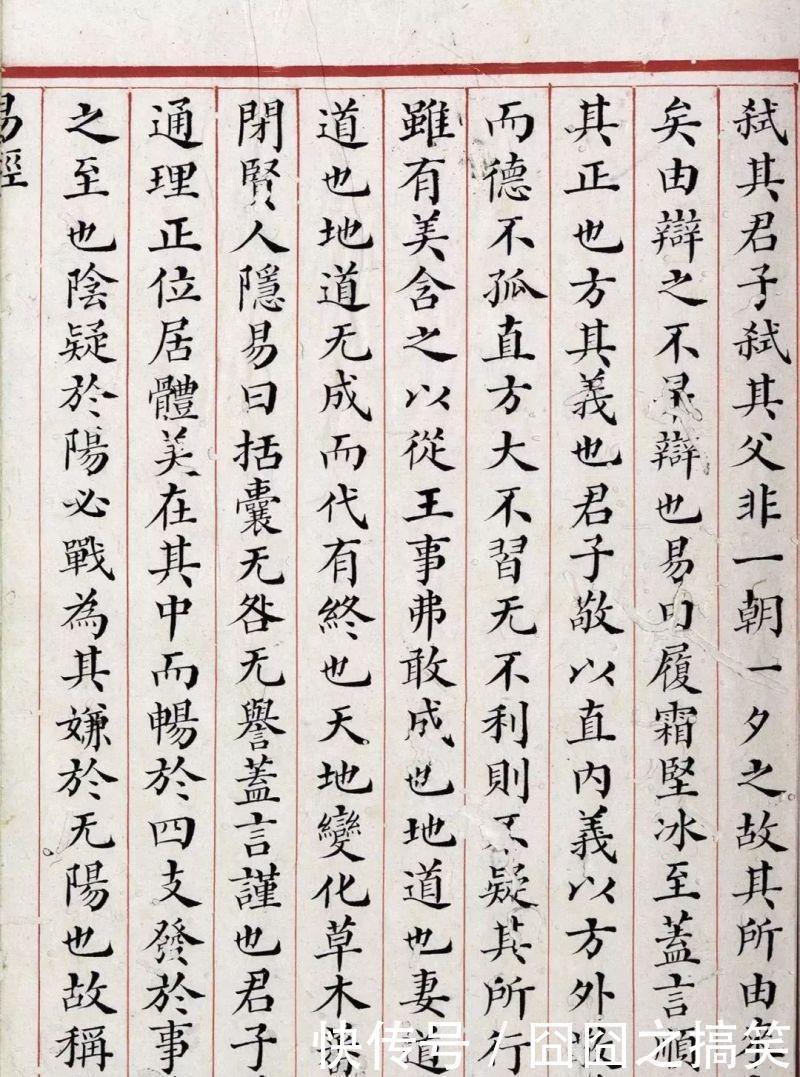 弑其君子弑其父非一朝一夕之故其所由來
矣由辯之不早辯也易曰履霜堅冰至蓋言順
其正也方其義也君子敬以直內義以方外
而德不孤直方大不習无不利則不疑其所行
雖有美含之以從王事弗敢成也地道也妻道
道也地道无成而代有終也天地變化草木蕃
閉賢人隱易曰括囊无咎无譽蓋言謹也君子
通理正位居體美在其中而暢於四支發於事
之至也陰疑於陽必戰為其嫌於无陽也故稱
易經
快传号/囧囧之搞笑